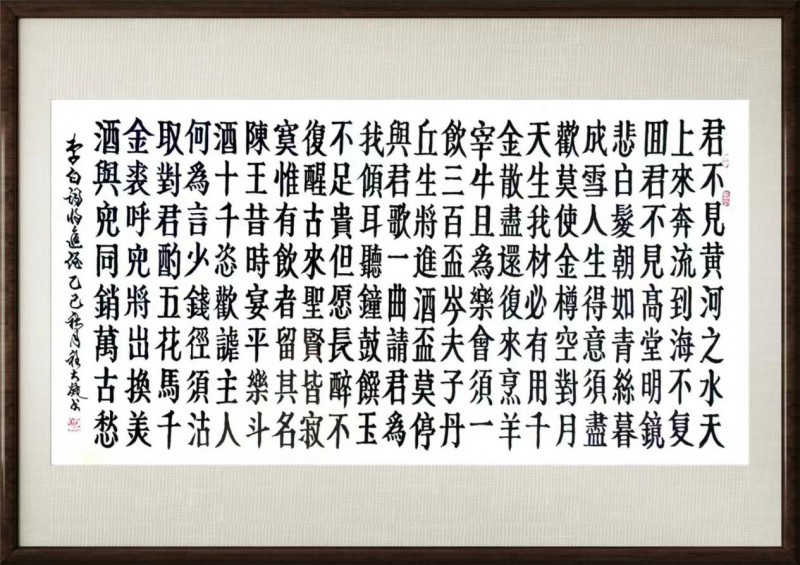 君不見黃河之水天
上來奔流到海不复
囬君不見高堂明鏡
悲白髮朝如青絲暮
成雪人生得意須盡
歡莫使金樽空對月
天生我材必有用千
金散盡還復來烹羊
宰牛且為樂會須一
飲三百盃岑夫子丹
丘生將進酒盃莫停
與君歌一曲請君為
我傾耳聽鐘鼓饌玉
不足貴但愿長醉不
復醒古來聖賢皆寂
寞惟有飲者留其名
陳王昔時宴平樂斗
酒十千恣歡謔主人
何為言少錢徑須沽
取對君酌五花馬千
金裘呼兒將出換美
酒與兒同銷萬古愁
李白詩將進酒 乙巳秋月